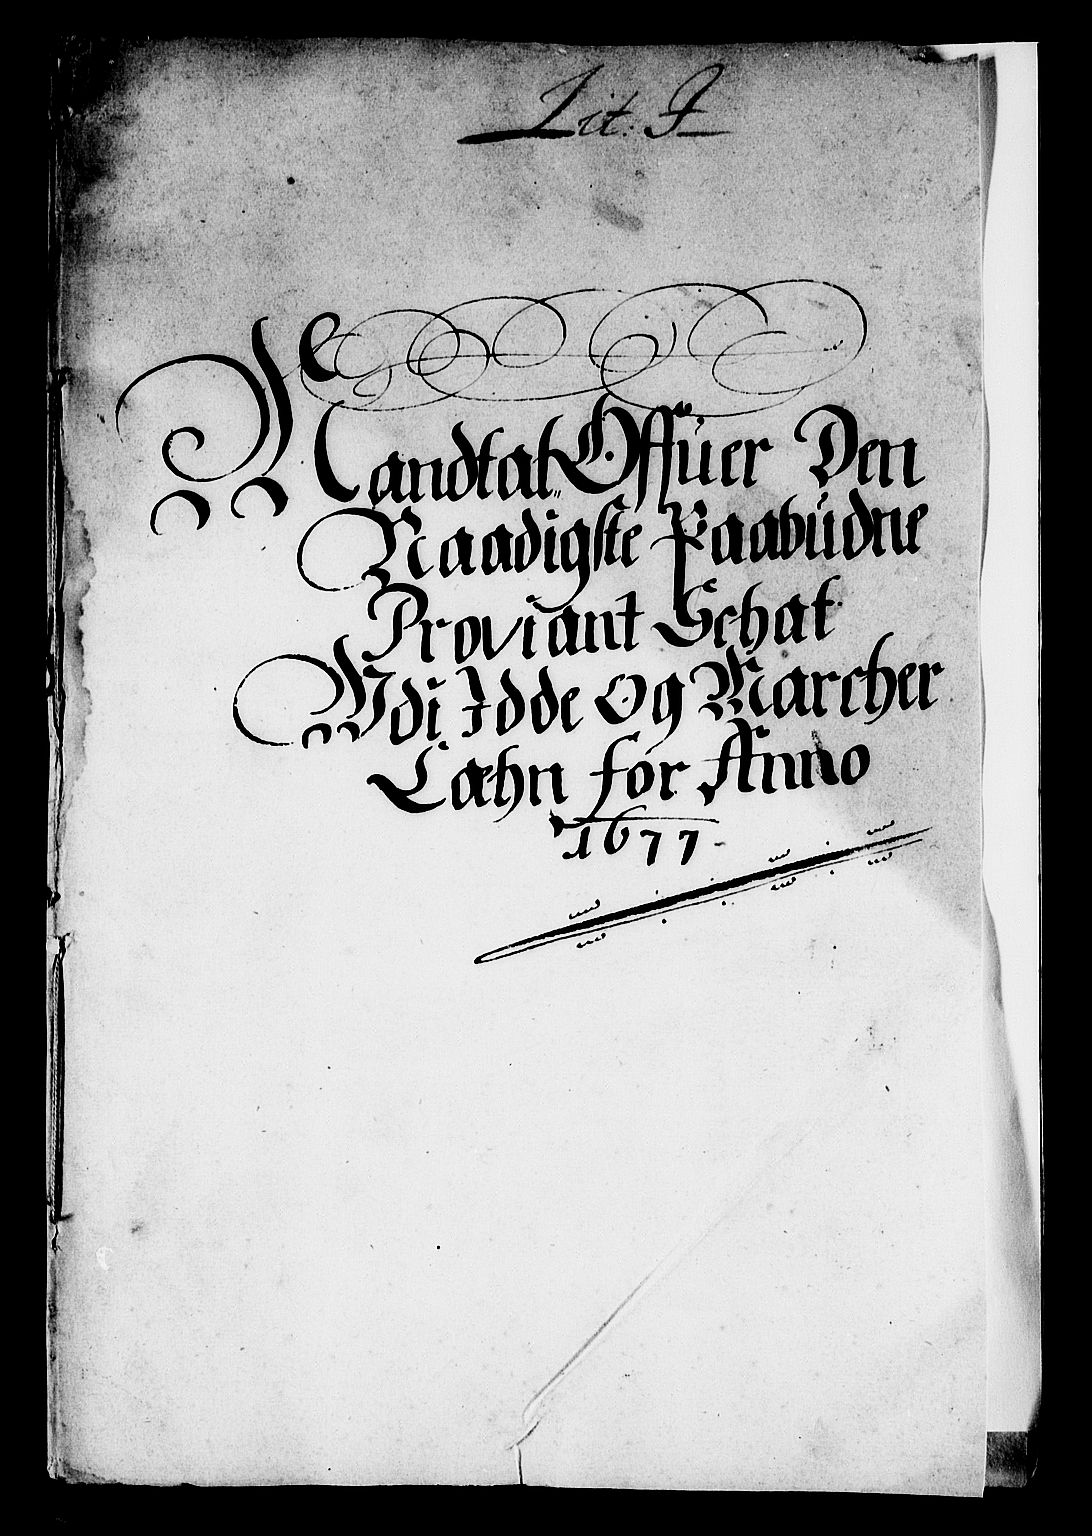 Lit: J
Mandtal Offuer Den
Naadigste Paabudne
Proviant Schat
Udi Idde Og Marcher
Læhn for Anno
1677